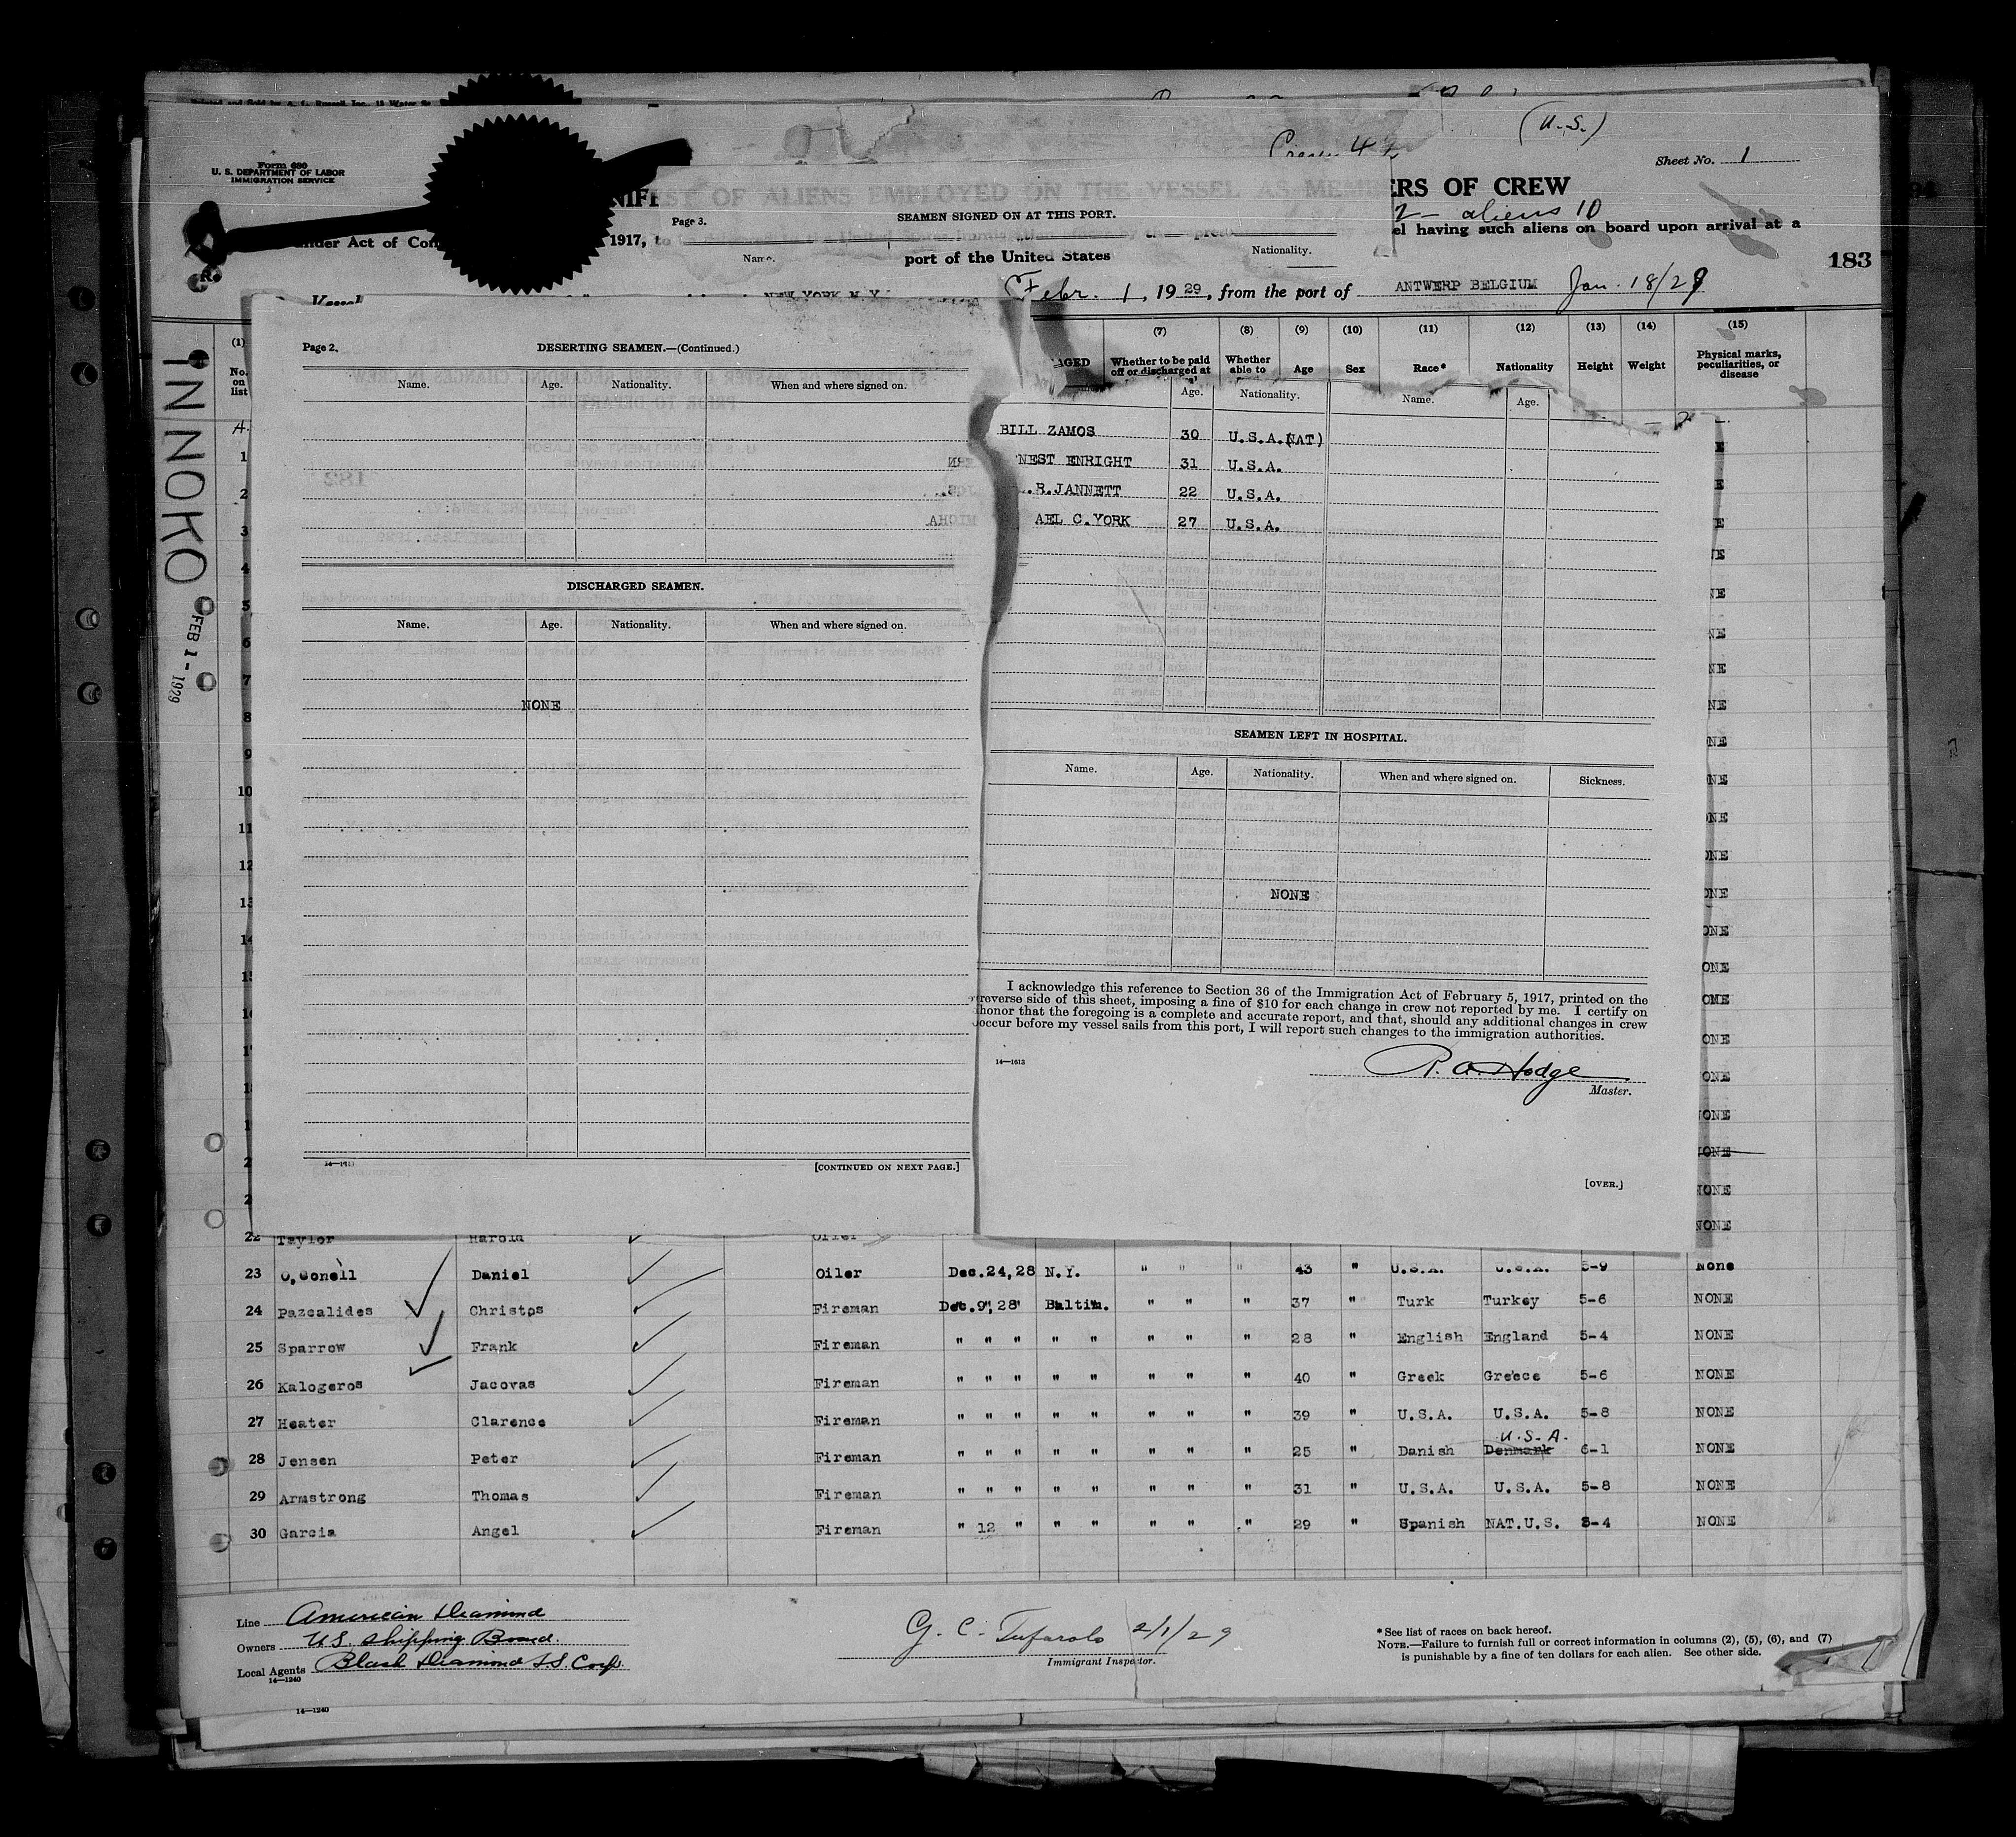 Form 680
U. S. DEPARTMENT OF LABOR
IMMIGRATION SERVICE
(U.S.)
Sheet No. 1
OF ALIENS EMPLOYED ON THE VESSEL AS
ERS OF CREW
2 - aliens 10
1917, to
el having such aliens on board upon arrival at a
port of the United States
183
NEW YORK N.Y.
Febr. 1, 1929, from the port of ANTWERP BELGIUM Jan. 18/29
Page 3.
SEAMEN SIGNED ON AT THIS PORT.
Name. Nationality.
INNOKO
FEB 1 - 1929
(1) (7) (8) (9) (10) (11) (12) (13) (14) (15)
No. on list
AGED
Whether to be paid off or discharged at
Whether able to
Age Sex Race* Nationality Height Weight
Physical marks, peculiarities, or disease
Page 2.
DESERTING SEAMEN.—(Continued.)
Name. Age. Nationality. When and where signed on.
DISCHARGED SEAMEN.
Name. Age. Nationality. When and where signed on.
NONE
[CONTINUED ON NEXT PAGE.]
Age. Nationality. Name. Age.
BILL ZAMOS 30 U.S.A.(NAT)
NEST ENRIGHT 31 U.S.A.
.R.JANNETT 22 U.S.A.
AEL C.YORK 27 U.S.A.
SEAMEN LEFT IN HOSPITAL.
Name. Age. Nationality. When and where signed on. Sickness.
NONE
I acknowledge this reference to Section 36 of the Immigration Act of February 5, 1917, printed on the
reverse side of this sheet, imposing a fine of $10 for each change in crew not reported by me. I certify on
honor that the foregoing is a complete and accurate report, and that, should any additional changes in crew
occur before my vessel sails from this port, I will report such changes to the immigration authorities.
14—1613
R. A. Hodge
Master.
[OVER.]
22 Taylor Harold Oiler
23 O,Conell Daniel Oiler Dec.24,28 N.Y. " " " 43 " U.S.A. U.S.A. 5-9 None
24 Pazcalides Christos Fireman Dec.9,28 Baltim. " " " 37 " Turk Turkey 5-6 NONE
25 Sparrow Frank Fireman " " " " " " " " 28 " English England 5-4 NONE
26 Kalogeros Jacovas Fireman " " " " " " " " 40 " Greek Greece 5-6 NONE
27 Heater Clarence Fireman " " " " " " " " 39 " U.S.A. U.S.A. 5-8 NONE
U.S.A.
28 Jensen Peter Fireman " " " " " " " " 25 " Danish Denmark 6-1 NONE
29 Armstrong Thomas Fireman " " " " " " " " 31 " U.S.A. U.S.A. 5-8 NONE
30 Garcia Angel Fireman " 12 " " " " " " 29 " Spanish NAT.U.S. 5-4 NONE
Line American Diamond
Owners US Shipping Board.
Local Agents Black Diamond S.S. Corp
14—1240
G. C. Tufarolo 2/1/29
Immigrant Inspector.
* See list of races on back hereof.
NOTE.—Failure to furnish full or correct information in columns (2), (5), (6), and (7)
is punishable by a fine of ten dollars for each alien. See other side.
14—1240